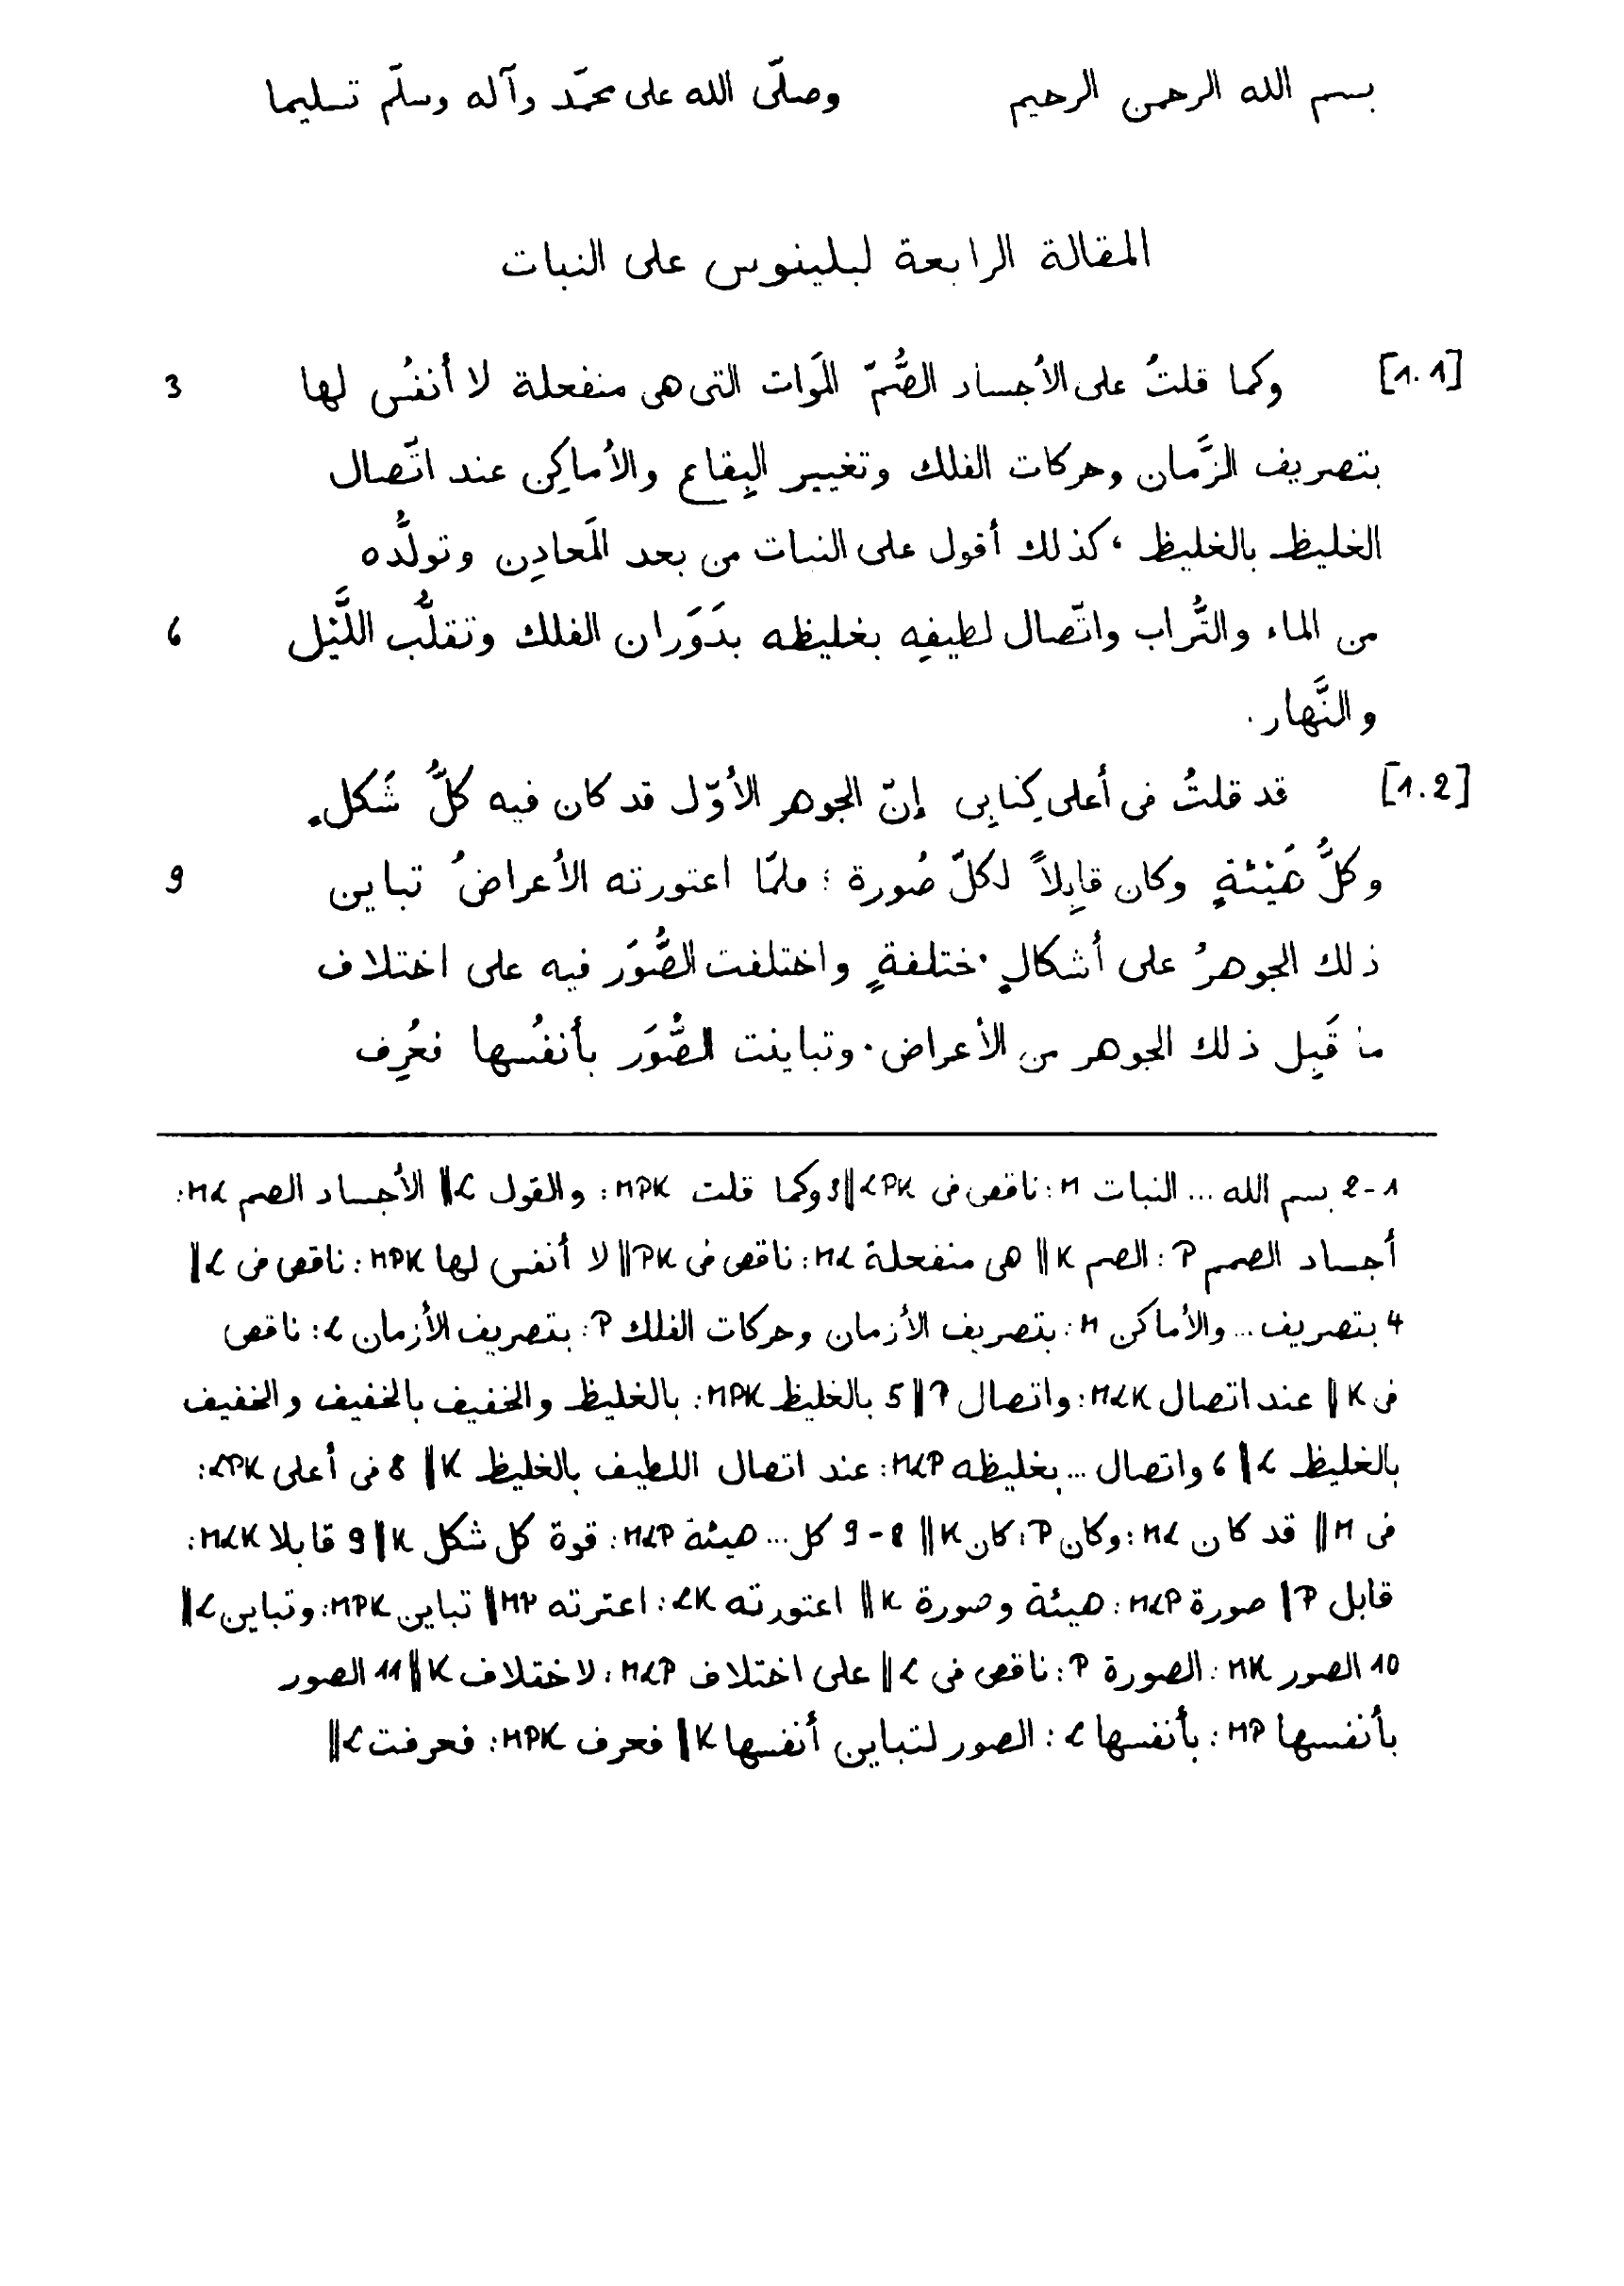 بسم الله الرحمن الرحيم وصلّى الله على محمّد وآله وسلّم تسليما
المقالة الرابعة لبلينوس على النبات
[1.1] وكما قلتُ على الأجساد الصُّمّ المَوات التى هى منفعلة لا أنفُس لها 3
بتصريف الزَّمان وحركات الفلك وتغيير البِقاع والأماكِن عند اتّصال
الغليظ بالغليظ، كذلك أقول على النبات من بعد المَعادِن وتولُّده
من الماء والتُّراب واتّصال لطيفِه بغليظه بدَوَران الفلك وتقلُّب اللَّيْل 6
والنَّهار.
[1.2] قد قلتُ فى أعلى كِتابِى إنّ الجوهر الأوّل قد كان فيه كلُّ شَكلٍ
وكلُّ هَيْئةٍ وكان قابِلاً لكلّ صُورة؛ فلمّا اعتورته الأعراضُ تباين 9
ذلك الجوهرُ على أشكالٍ مختلفةٍ واختلفت الصُّوَر فيه على اختلاف
ما قَبِل ذلك الجوهر من الأعراض. وتباينت الصُّوَر بأنفُسها فعُرِف
1-2 بسم الله ... النبات M: ناقص فى LPK || 3 وكما قلت MPK: والقول L || الأجساد الصم ML:
أجساد الصمم P: الصم K || هى منفعلة ML: ناقص فى PK || لا أنفس لها MPK: ناقص فى L ||
4 بتصريف ... والأماكن M: بتصريف الأزمان وحركات الفلك P: بتصريف الأزمان L: ناقص
فى K || عند اتصال MLK: واتصال P || 5 بالغليظ MPK: بالغليظ والخفيف بالخفيف والخفيف
بالغليظ L || 6 واتصال ... بغليظه MLP: عند اتصال اللطيف بالغليظ K || 8 فى أعلى LPK:
فى M || قد كان ML: وكان P: كان K || 8-9 كل ... هيئة MLP: قوة كل شكل K || 9 قابلا MLK:
قابل P || صورة MLP: هيئة وصورة K || اعتورته LK: اعترته MP || تباين MPK: وتباين L ||
10 الصور MK: الصورة P: ناقص فى L || على اختلاف MLP: لاختلاف K || 11 الصور
بأنفسها MP: بأنفسها L: الصور لتباين أنفسها K || فعرف MPK: فعرفت L ||